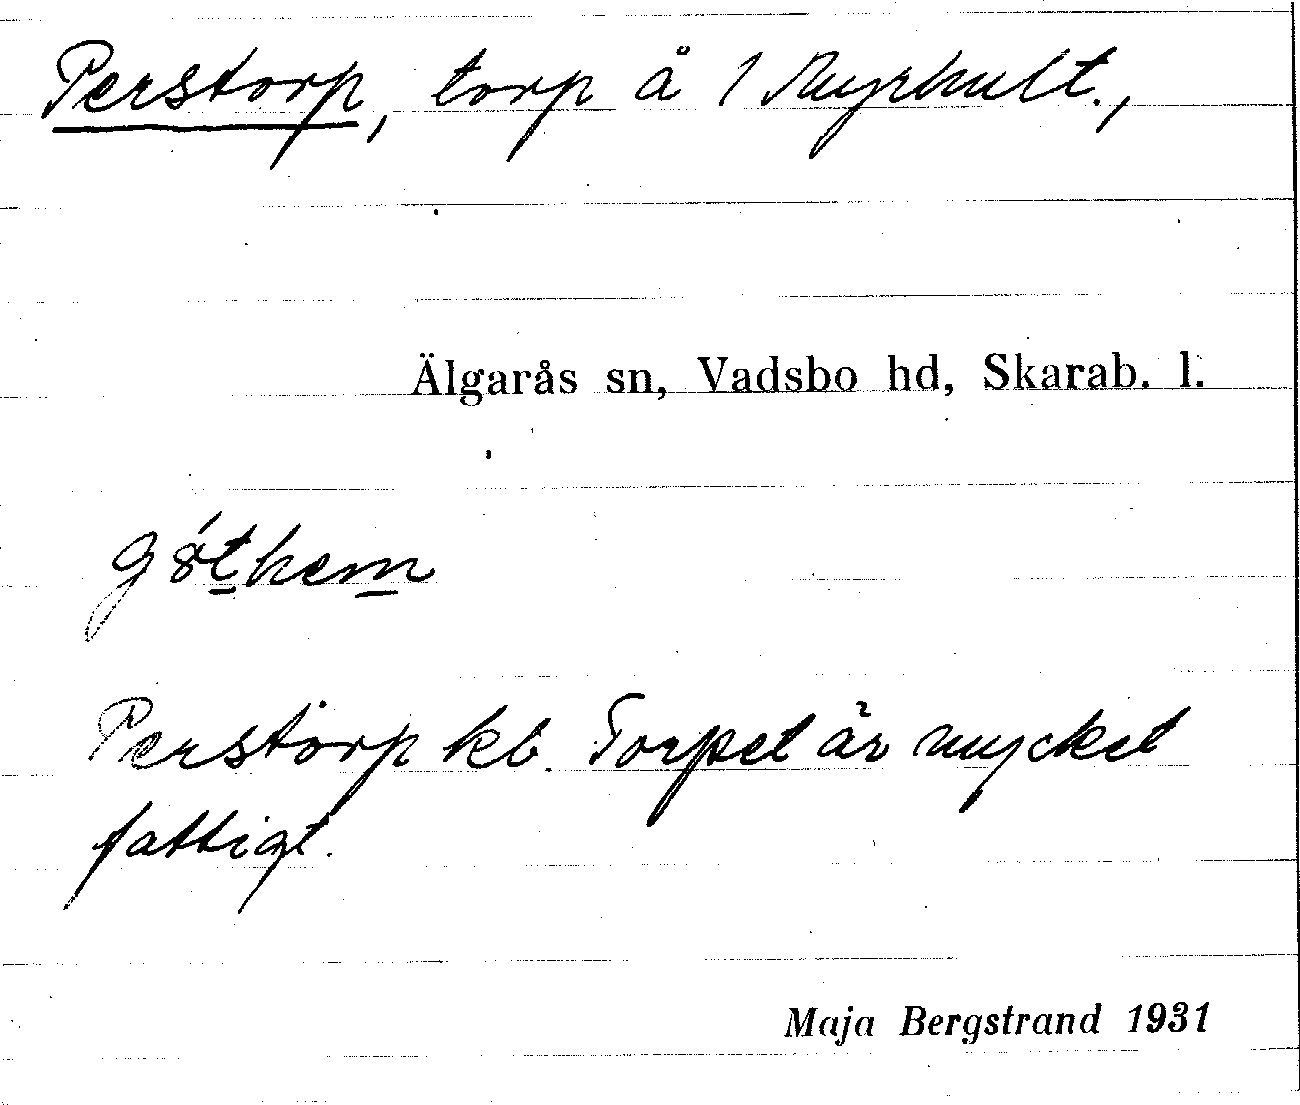 Perstorp, torp å 1 Myrhult.,
Älgarås sn, Vadsbo hd, Skarab. l.
Perstorp kb. Torpet är mycket
fattigt.
Maja Bergstrand 1931